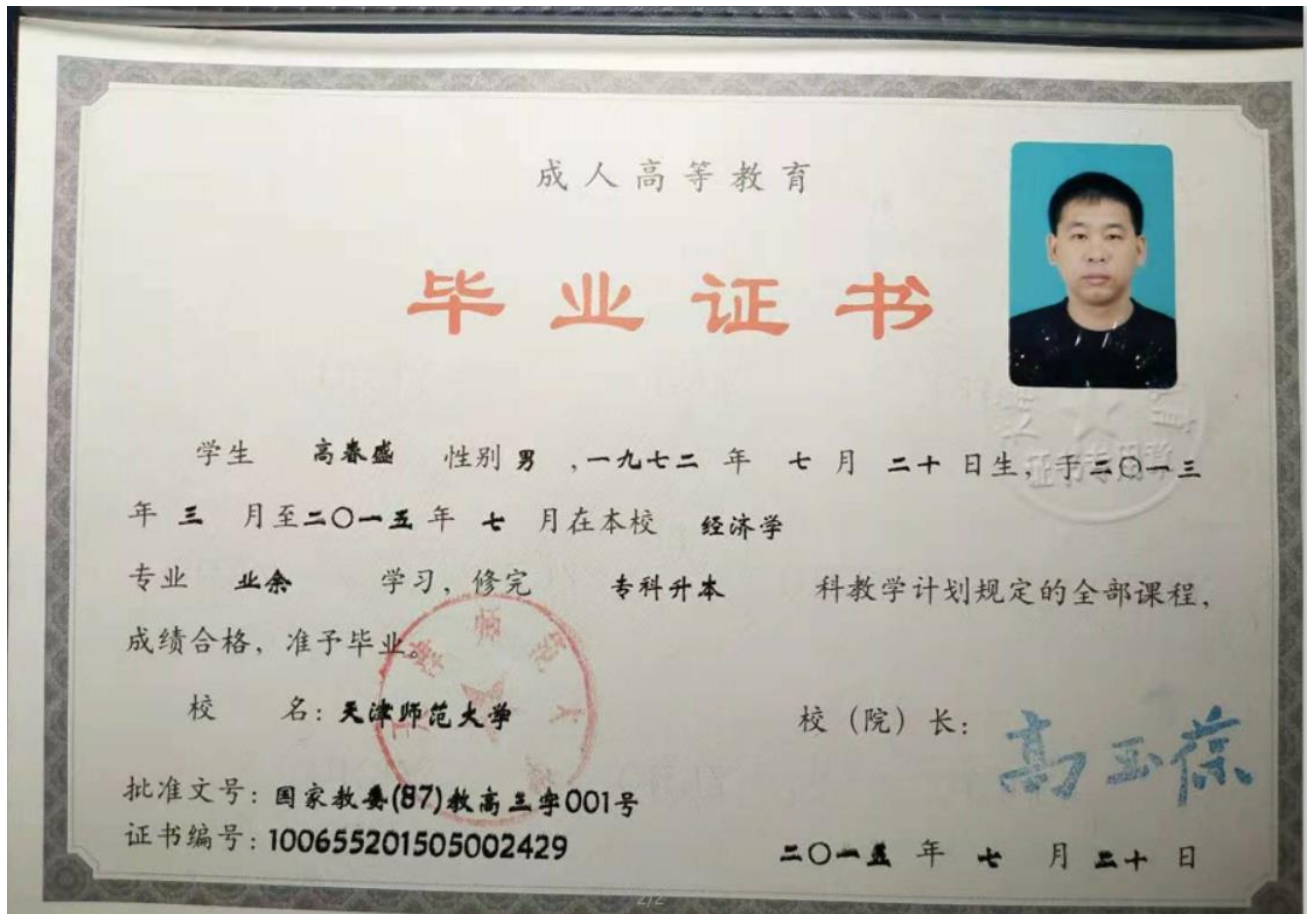 成人高等教育
毕业证书
学生 高春盛 性别 男 ,一九七二 年 七 月 二十 日生, 于二〇一三
年 三 月至二〇一五 年 七 月在本校 经济学
专业 业余 学习, 修完 专科升本 科教学计划规定的全部课程,
成绩合格, 准予毕业。
天津师范大学
证书专用章
校 名: 天津师范大学 校 (院) 长: 高玉葆
批准文号: 国家教委(87)教高三字001号
证书编号: 100655201505002429
二〇一五 年 七 月 二十 日
2/2